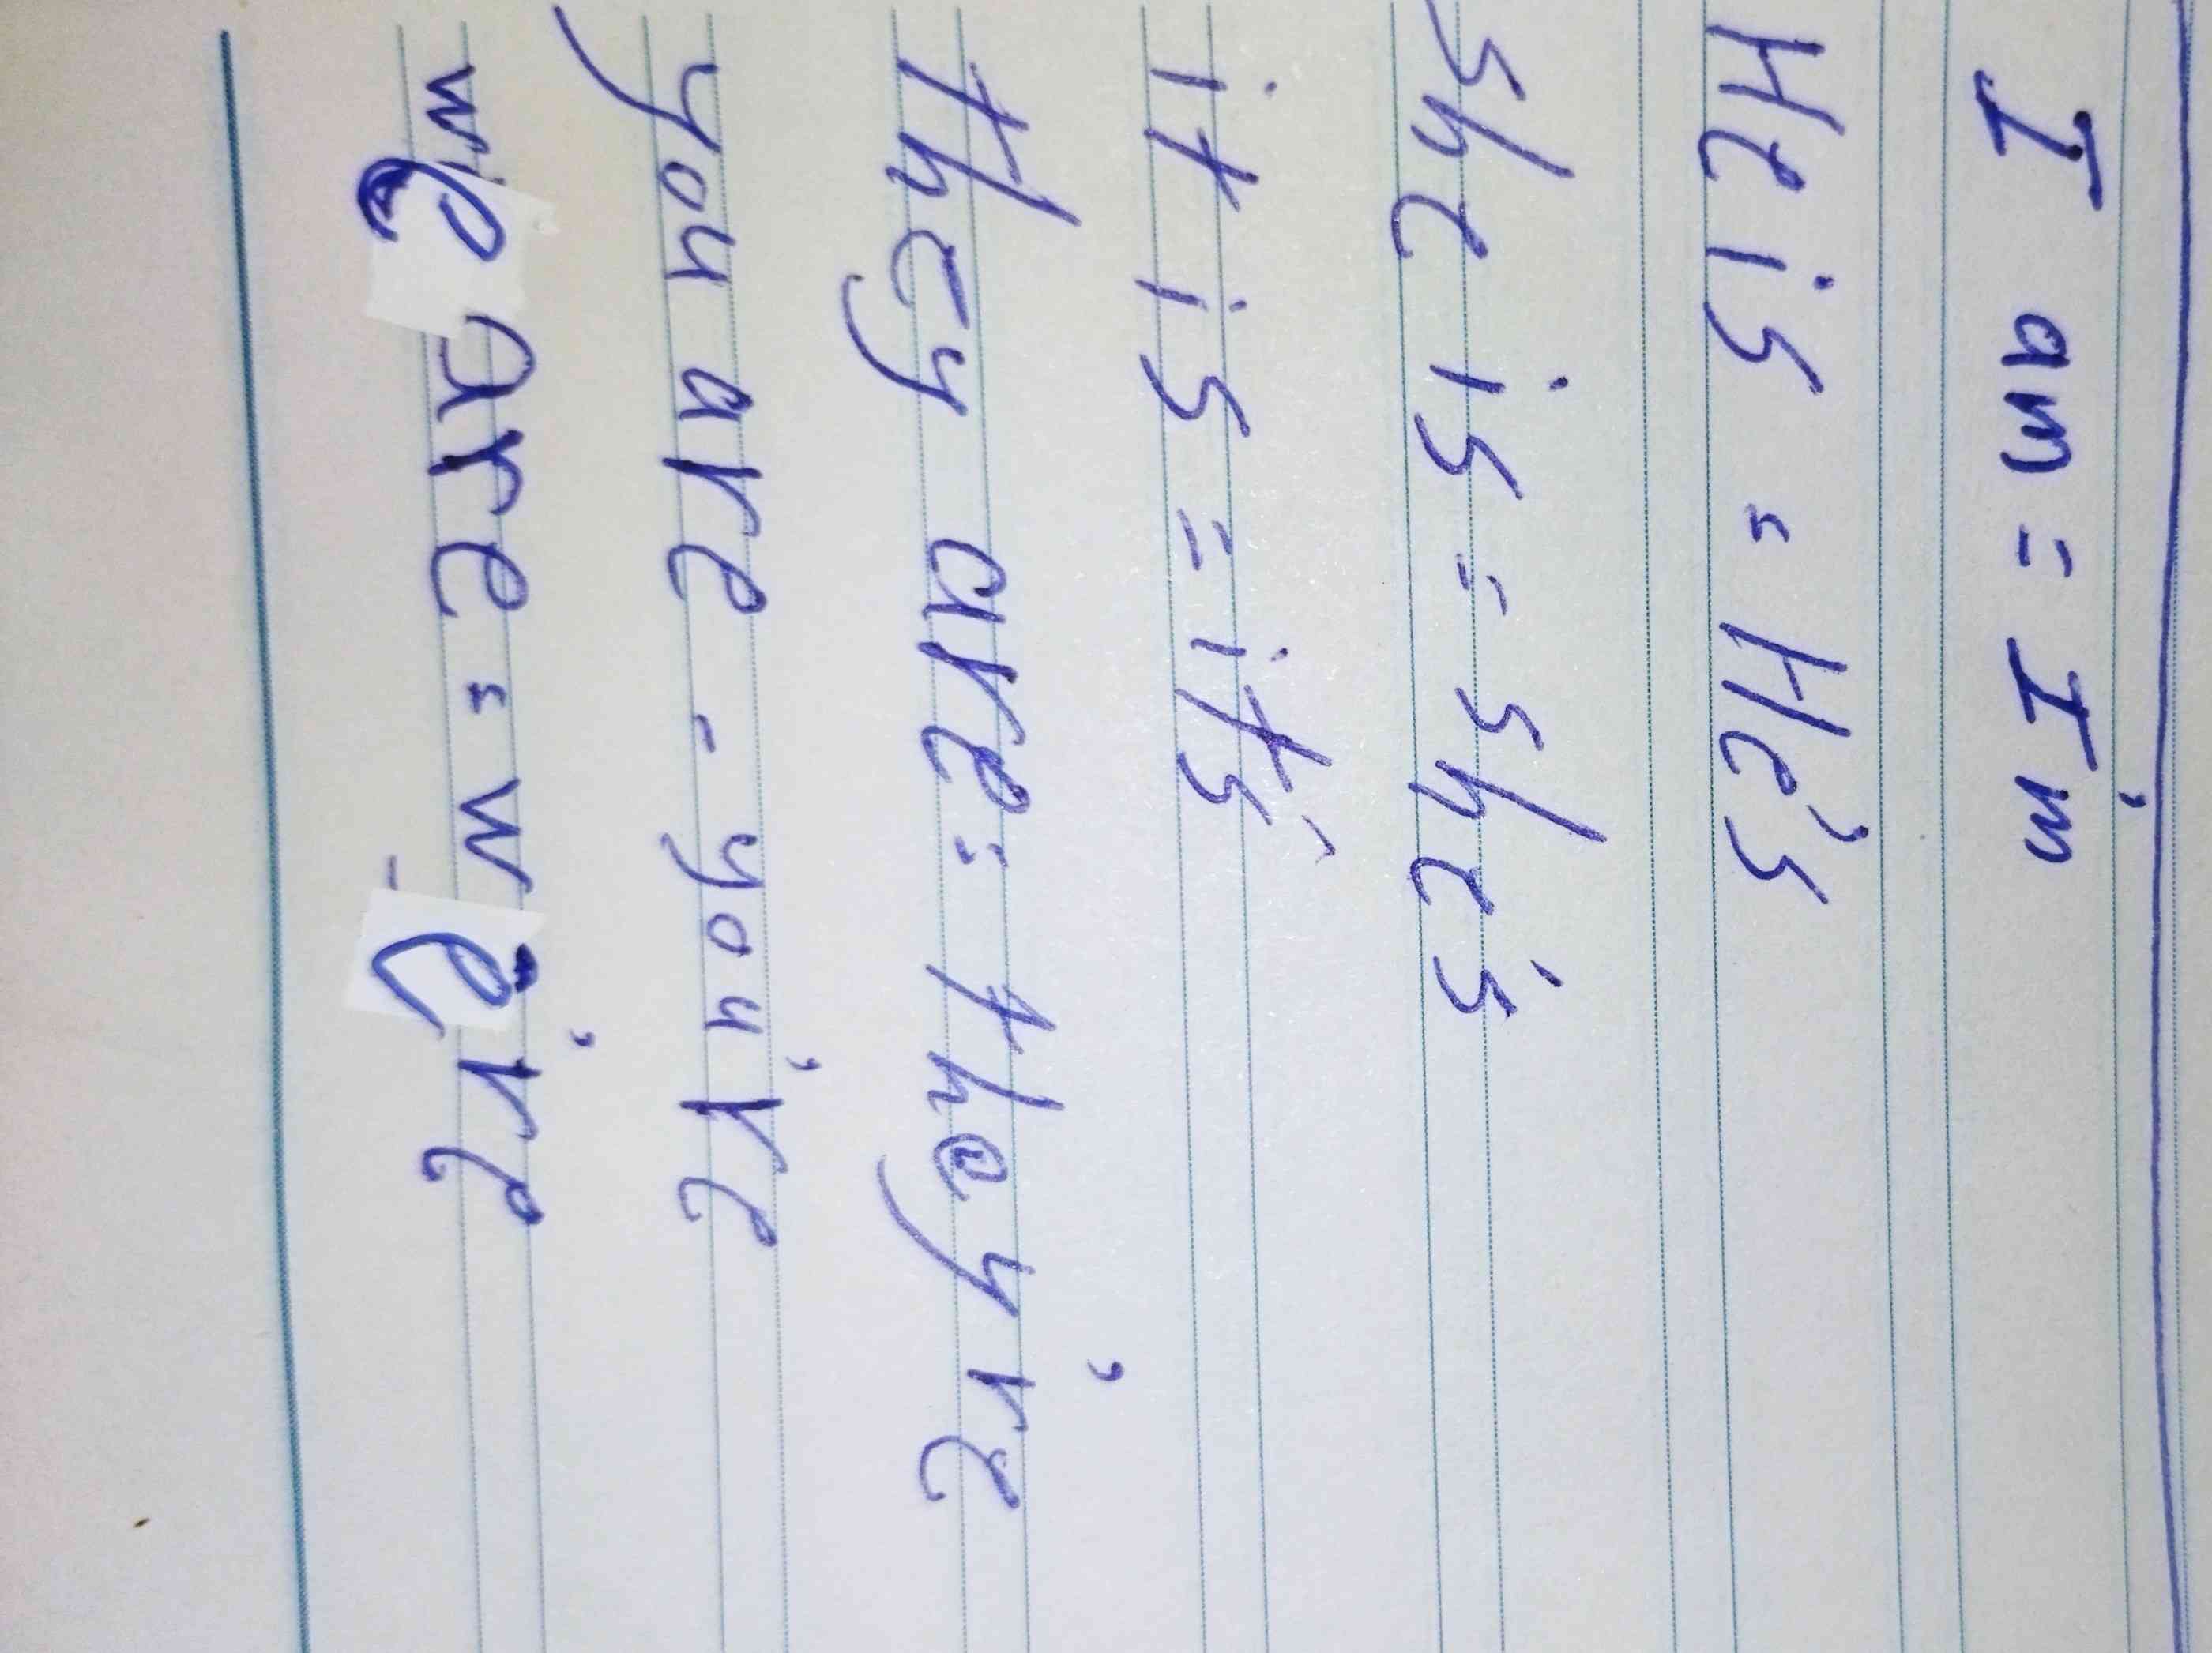 I am = I'm
He is = He's
she is = she's
it is = it's
they are = they're
you are - you're
we are = we're